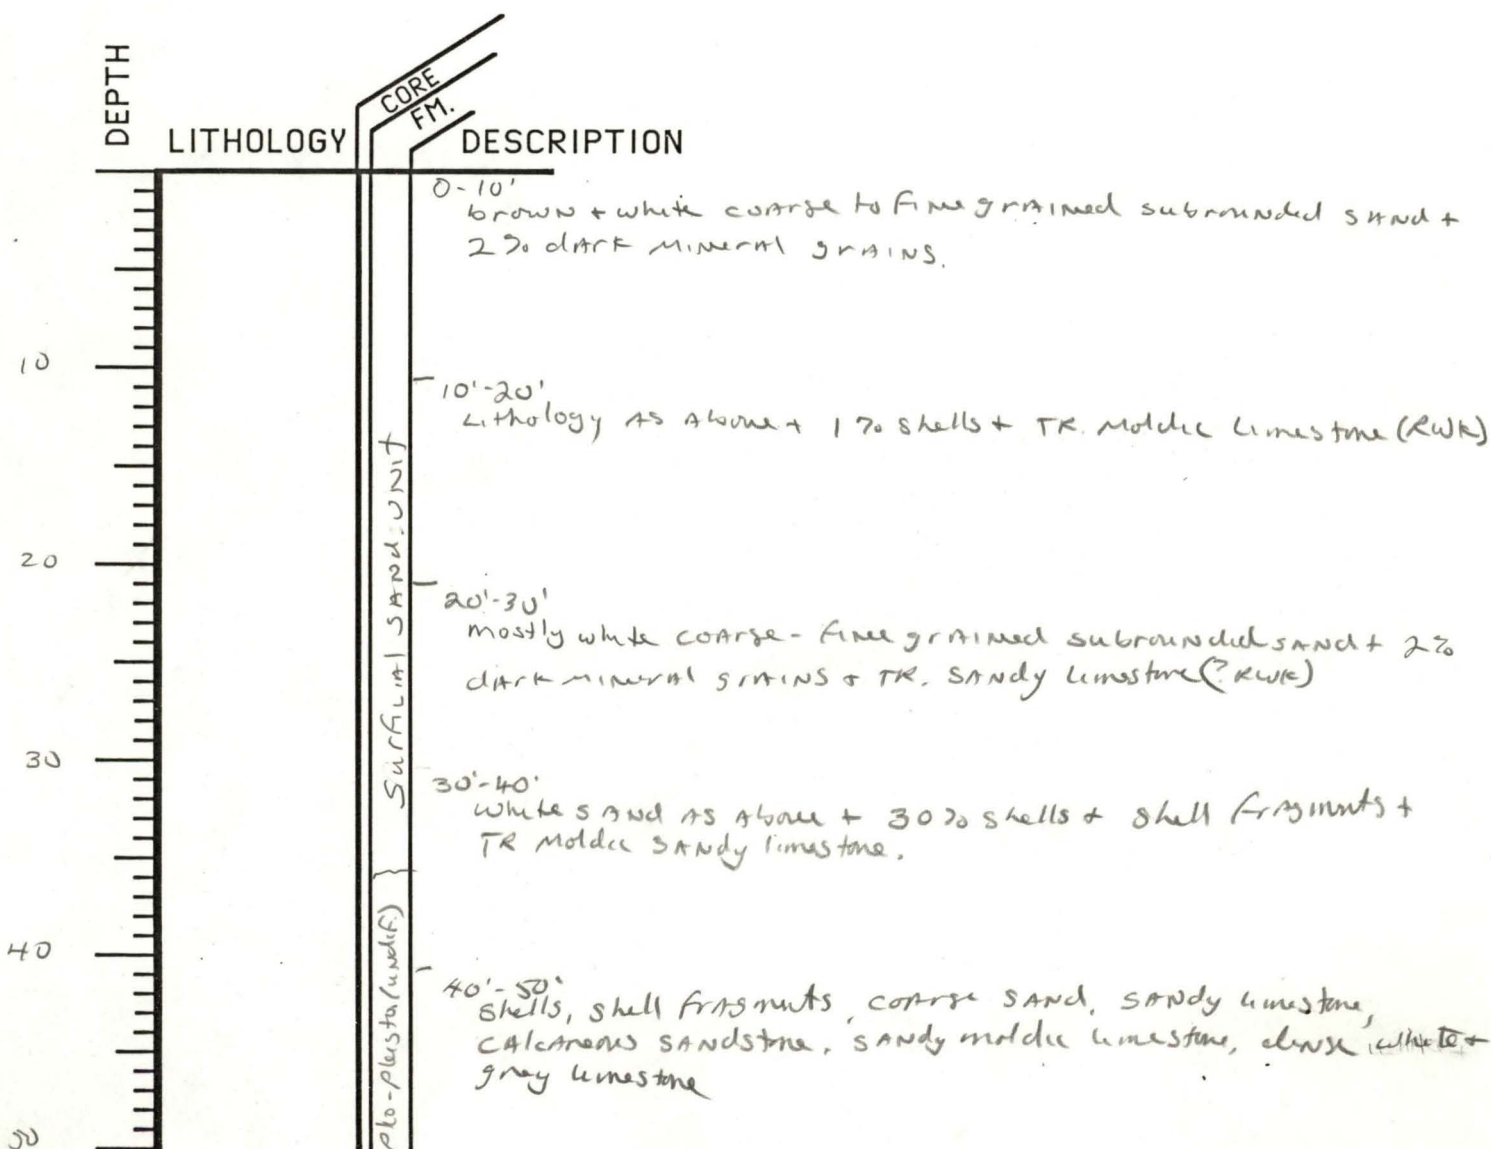 DEPTH
LITHOLOGY
CORE
FM.
DESCRIPTION
0-10'
brown + white coarse to fine grained subrounded sand +
2% dark mineral grains.
10
10'-20'
Lithology as above + 1% shells + TR. Moldic Limestone (RWK)
Surficial Sand Unit
20
20'-30'
mostly white coarse-fine grained subrounded sand + 2%
dark mineral grains + TR. Sandy limestone (? RWK)
30
30'-40'
white sand as above + 30% shells + shell fragments +
TR Moldic Sandy limestone.
Plio-pleisto (undif.)
40
40'-50'
Shells, shell fragments, coarse sand, sandy limestone,
calcareous sandstone, sandy moldic limestone, dense, white +
gray limestone
50